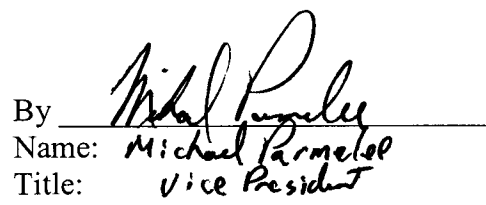 By Michael Parmelee
Name: Michael Parmelee
Title: Vice President